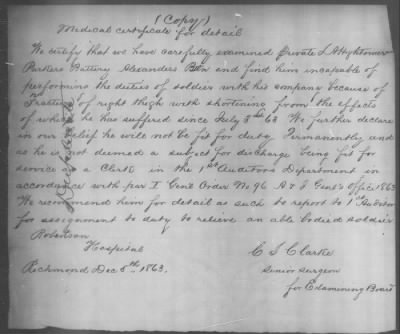 (Copy)
Medical certificate for detail
We certify that we have carefully examined Private L A Hightower
Parkers Battery Alexanders Btn and find him incapable of
performing the duties of soldier with his company because of
Fracture of right thigh with shortening from the effects
of which he has suffered since July 3rd 63 We further declare
in our belief he will not be fit for duty Permanently and
as he is not deemed a subject for discharge being fit for
service as a Clerk in the 1st Auditors Department in
accordance with par I Genl Order No 96 A & I Genls Office 1863
We recommend him for detail as such to report to 1st Auditor
for assignment to duty to relieve an able bodied soldier
Robertson
Hospital
Richmond Dec 8th 1863.
C S Clarke
Senior Surgeon
for Examining Board